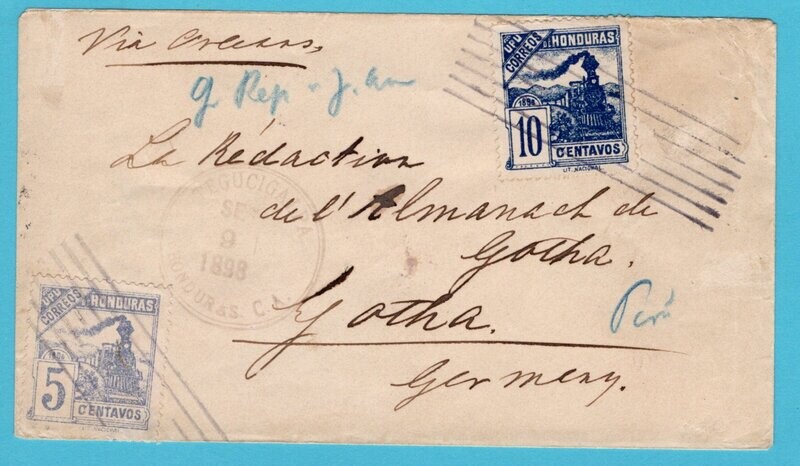 Via
UPU
CORREOS
DE HONDURAS
1898
10
CENTAVOS
LIT. NACIONAL
La Rédaction
de l'Almanach de
Gotha.
Gotha.
Germany.
TEGUCIGALPA
SE
9
1898
HONDURAS. C.A.
UPU
CORREOS
DE HONDURAS
1898
5
CENTAVOS